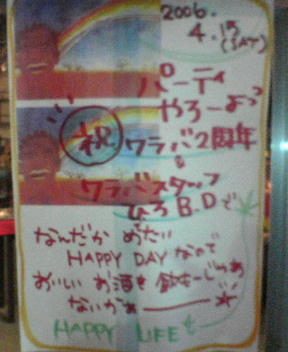 2006.
4.15
(SAT)
パーティ
やろーよっ
祝
ワラバ2周年
&
ワラバスタッフ
ひろ B.Dで
なんだか めでたい
HAPPY DAY なので
おいしい お酒を 飲もーじゃあ
ないかぁ
HAPPY LIFEを